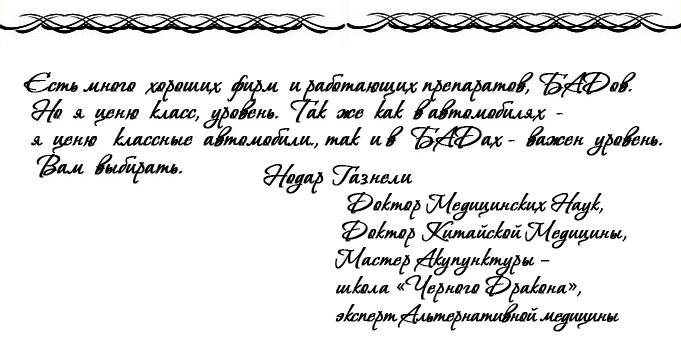 Есть много хороших фирм и работающих препаратов, БАДов.
Но я ценю класс, уровень. Так же как в автомобилях -
я ценю классные автомобили., так и в БАДах - важен уровень.
Вам выбирать.
Нодар Газнели
Доктор Медицинских Наук,
Доктор Китайской Медицины,
Мастер Акупунктуры –
школа «Черного Дракона»,
эксперт Альтернативной медицины